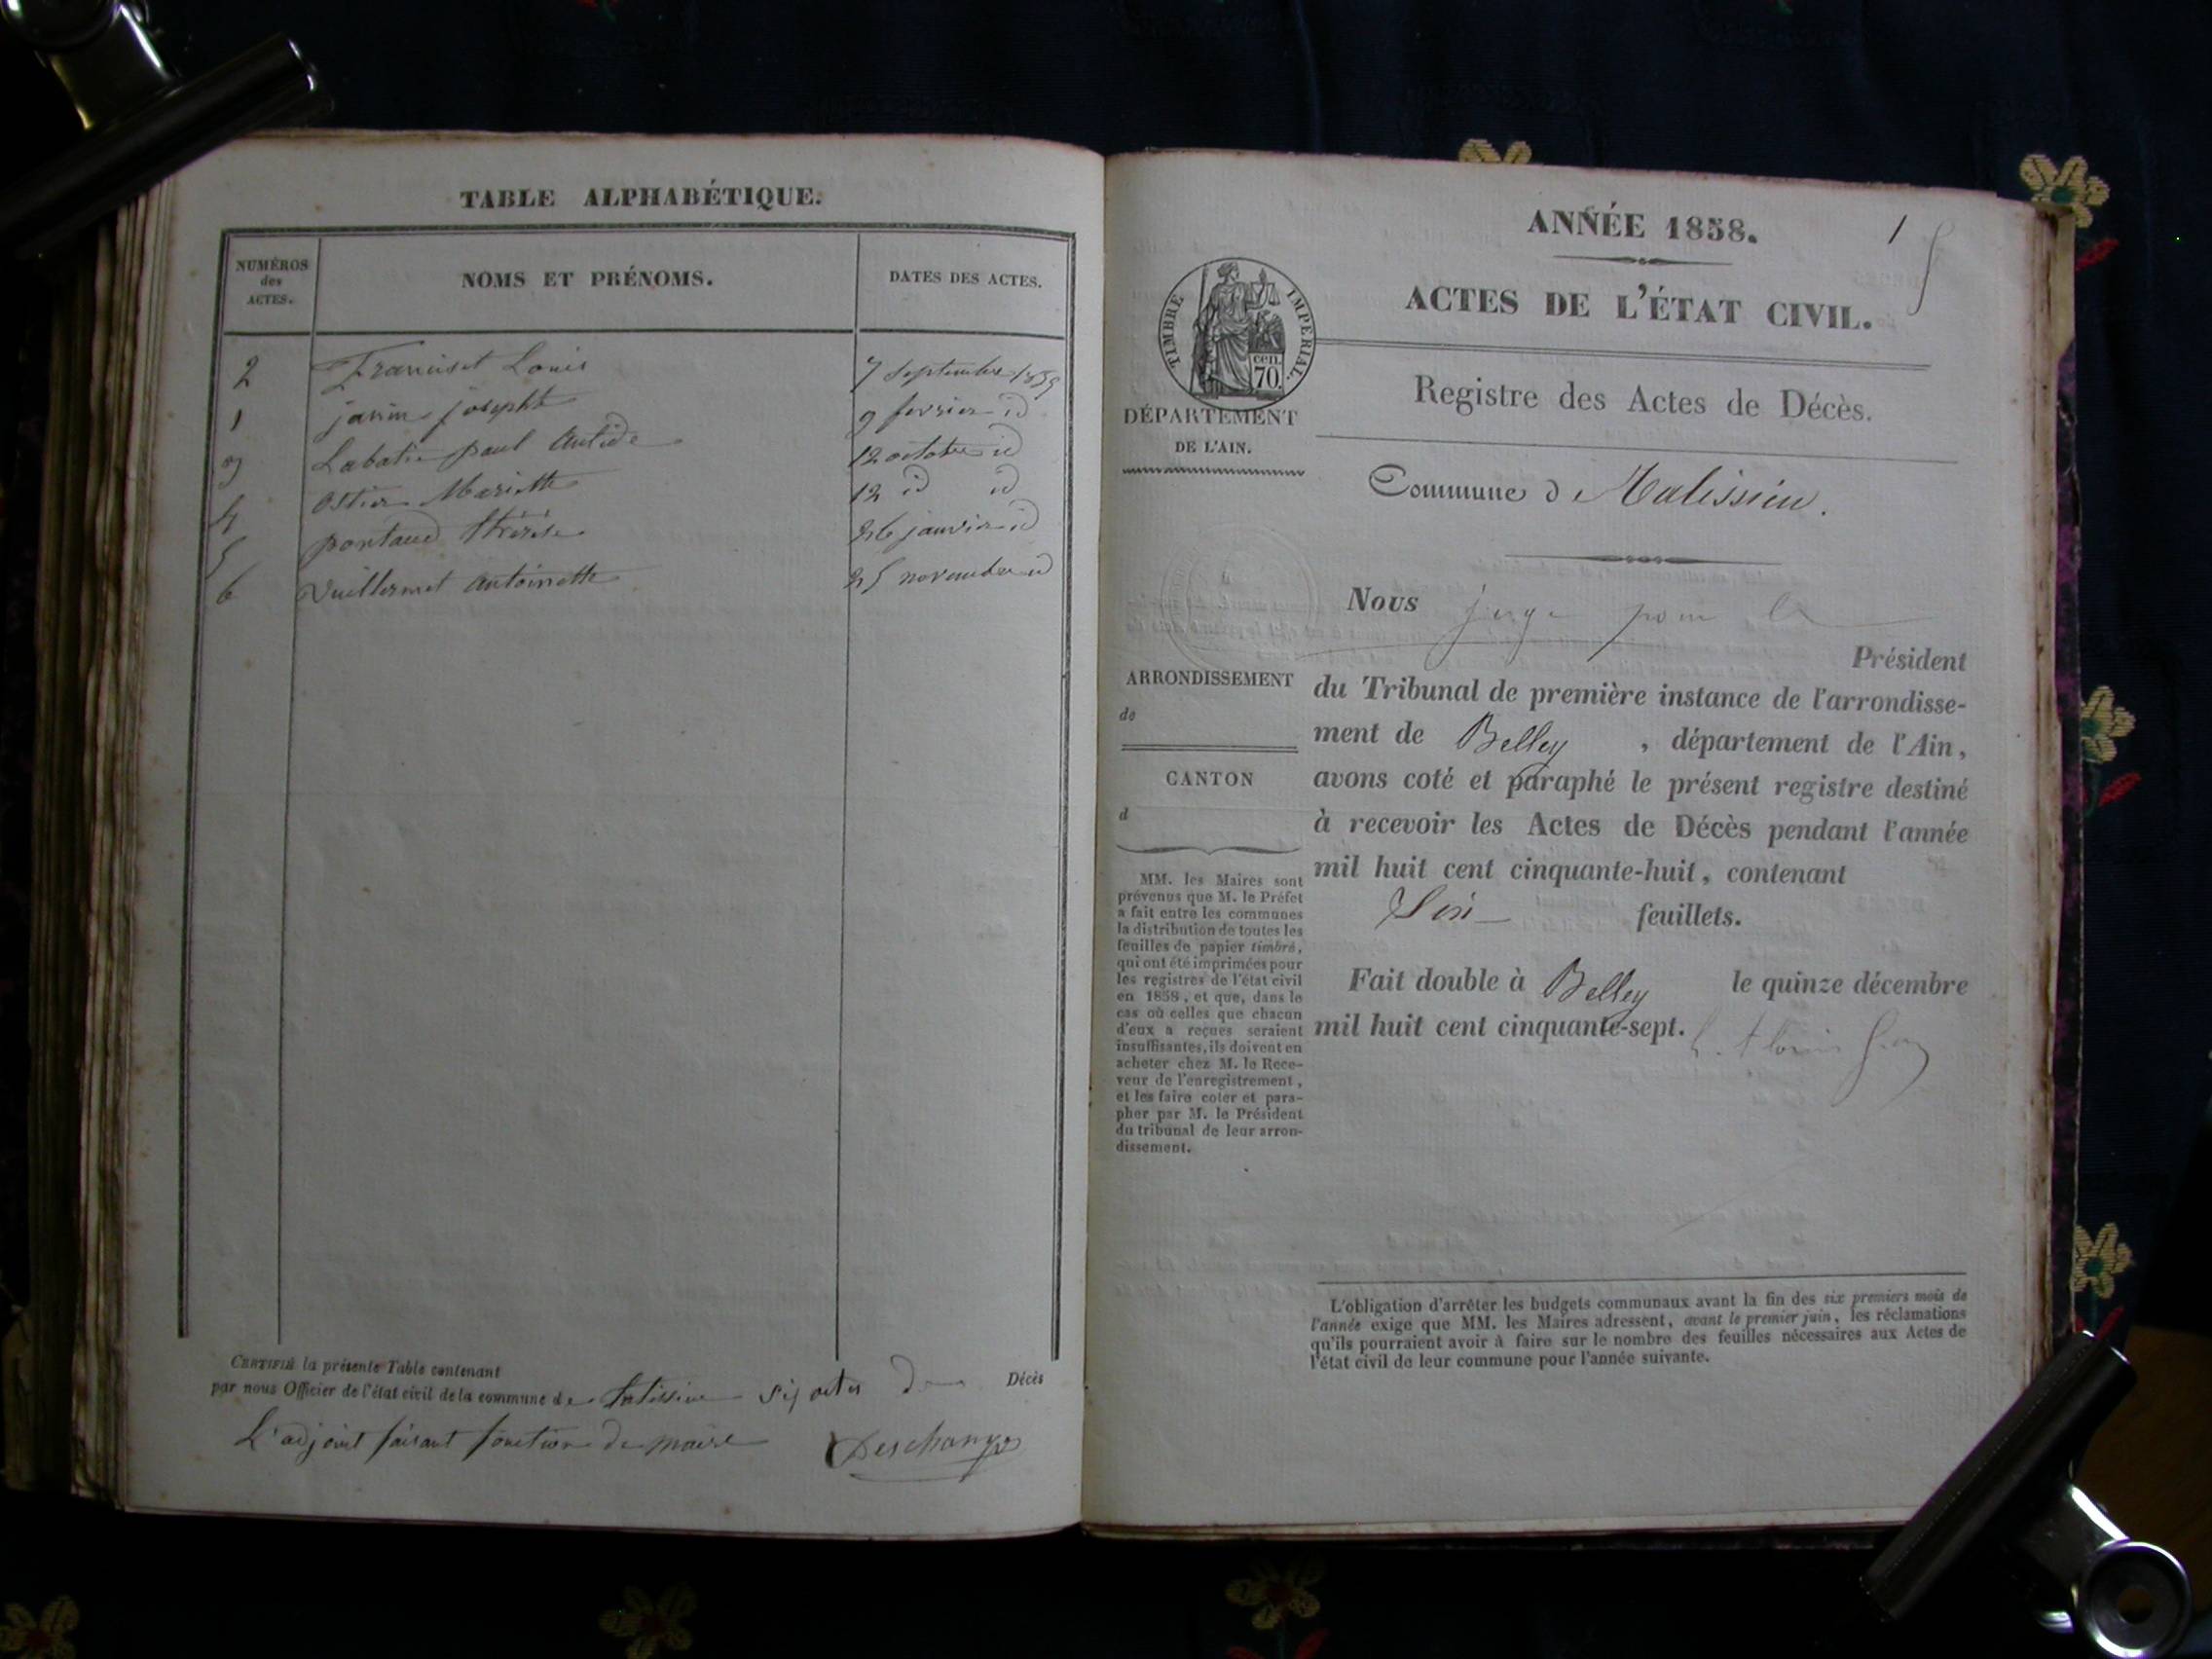 TABLE ALPHABÉTIQUE.
NUMÉROS
des
ACTES.
NOMS ET PRÉNOMS.
DATES DES ACTES.
2 Franciset Louis 7 septembre 1857
1 janin josephte 9 fevrier id
3 Labatie paul Antide 12 octobre id
4 ostier Mariette 12 id id
5 pontaud thérèse 26 janvier id
6 Vuillermet antoinette 25 novembre id
CERTIFIÉ la présente Table contenant
par nous Officier de l'état civil de la commune de six actes de Décès
L'adjoint faisant fonction de maire Deschamps
ANNÉE 1858.
1
ACTES DE L'ÉTAT CIVIL.
TIMBRE IMPERIAL.
cen.
70.
DÉPARTEMENT
DE L'AIN.
Registre des Actes de Décès.
Commune de
Nous juge pour le
Président
du Tribunal de première instance de l'arrondisse-
ment de Belley , département de l'Ain,
avons coté et paraphé le présent registre destiné
à recevoir les Actes de Décès pendant l'année
mil huit cent cinquante-huit, contenant
Six feuillets.
Fait double à Belley le quinze décembre
mil huit cent cinquante-sept.
ARRONDISSEMENT
de
CANTON
d
MM. les Maires sont
prévenus que M. le Préfet
a fait entre les communes
la distribution de toutes les
feuilles de papier timbré,
qui ont été imprimées pour
les registres de l'état civil
en 1858, et que, dans le
cas où celles que chacun
d'eux a reçues seraient
insuffisantes, ils doivent en
acheter chez M. le Rece-
veur de l'enregistrement,
et les faire coter et para-
pher par M. le Président
du tribunal de leur arron-
dissement.
L'obligation d'arrêter les budgets communaux avant la fin des six premiers mois de
l'année exige que MM. les Maires adressent, avant le premier juin, les réclamations
qu'ils pourraient avoir à faire sur le nombre des feuilles nécessaires aux Actes de
l'état civil de leur commune pour l'année suivante.